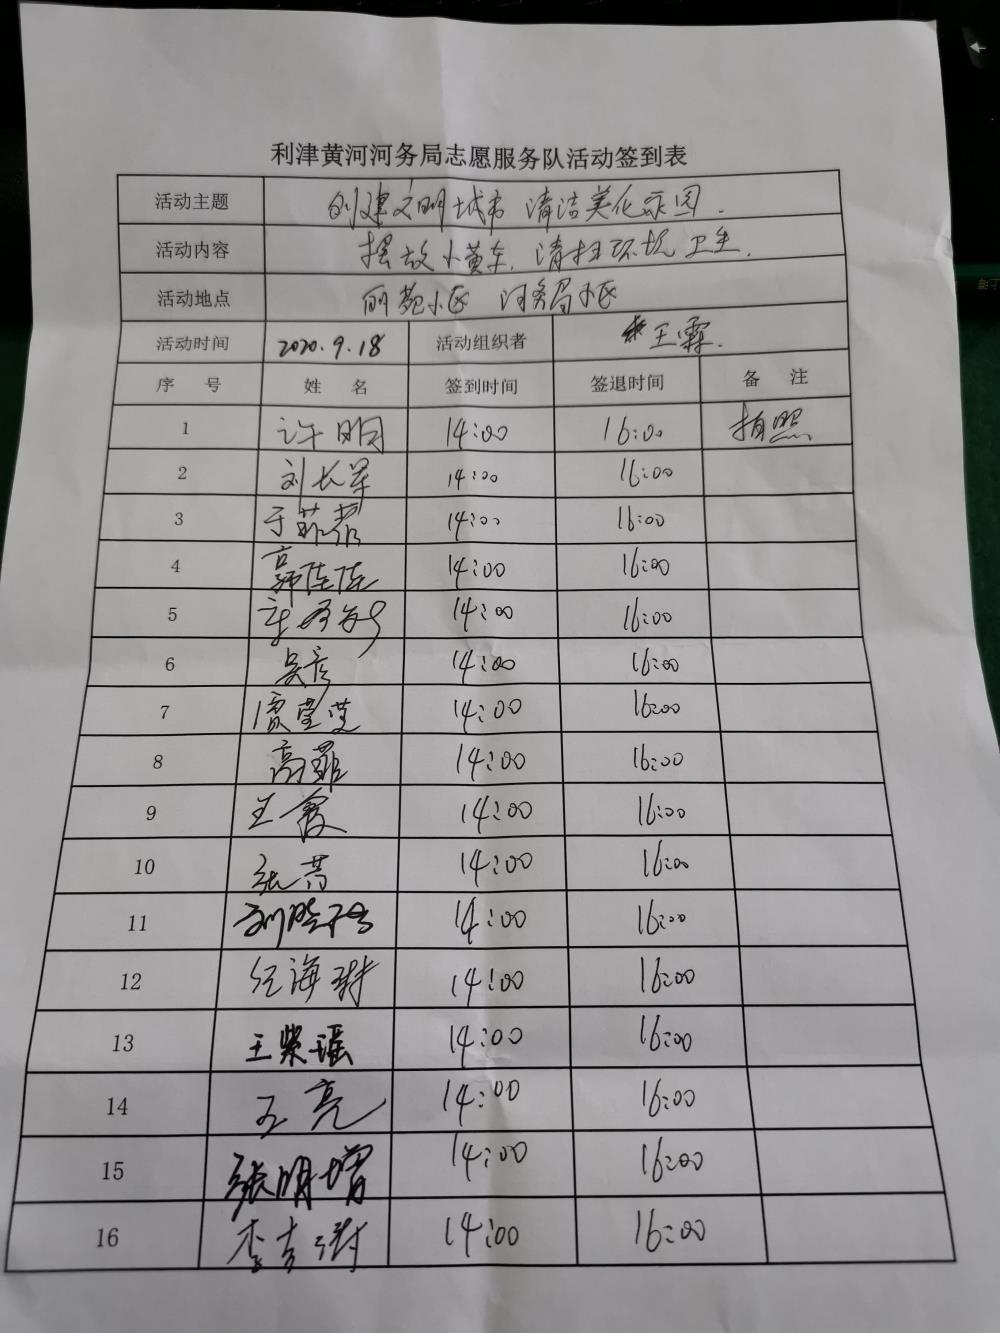 利津黄河河务局志愿服务队活动签到表
活动主题 创建文明城市 清洁美化家园.
活动内容 摆放小黄车,清扫环境卫生.
活动地点 丽苑小区 河务局小区
活动时间 2020.9.18 活动组织者 王霖.
序 号 姓 名 签到时间 签退时间 备 注
1 许明 14:00 16:00 拍照
2 刘长军 14:00 16:00
3 于菲菲 14:00 16:00
4 郭陆陆 14:00 16:00
5 14:00 16:00
6 吴彦 14:00 16:00
7 贾莹莹 14:00 16:00
8 高菲 14:00 16:00
9 王霞 14:00 16:00
10 张芳 14:00 16:00
11 14:00 16:00
12 纪海琳 14:00 16:00
13 王紫瑶 14:00 16:00
14 王亮 14:00 16:00
15 张明增 14:00 16:00
16 李吉 14:00 16:00